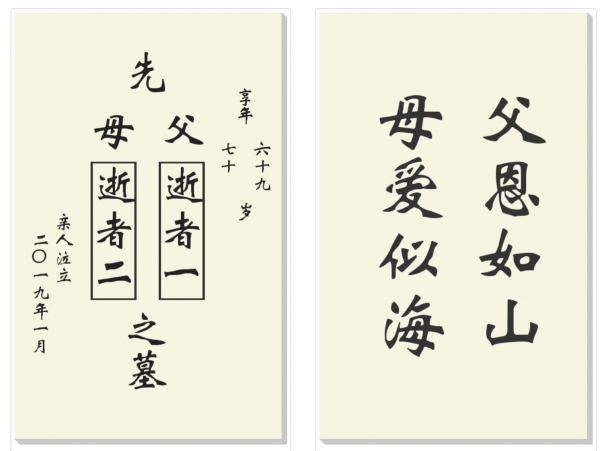 享年
六十九
七十
岁
先
父
母
逝者一
逝者二
之墓
亲人泣立
二〇一九年一月
父恩如山
母爱似海